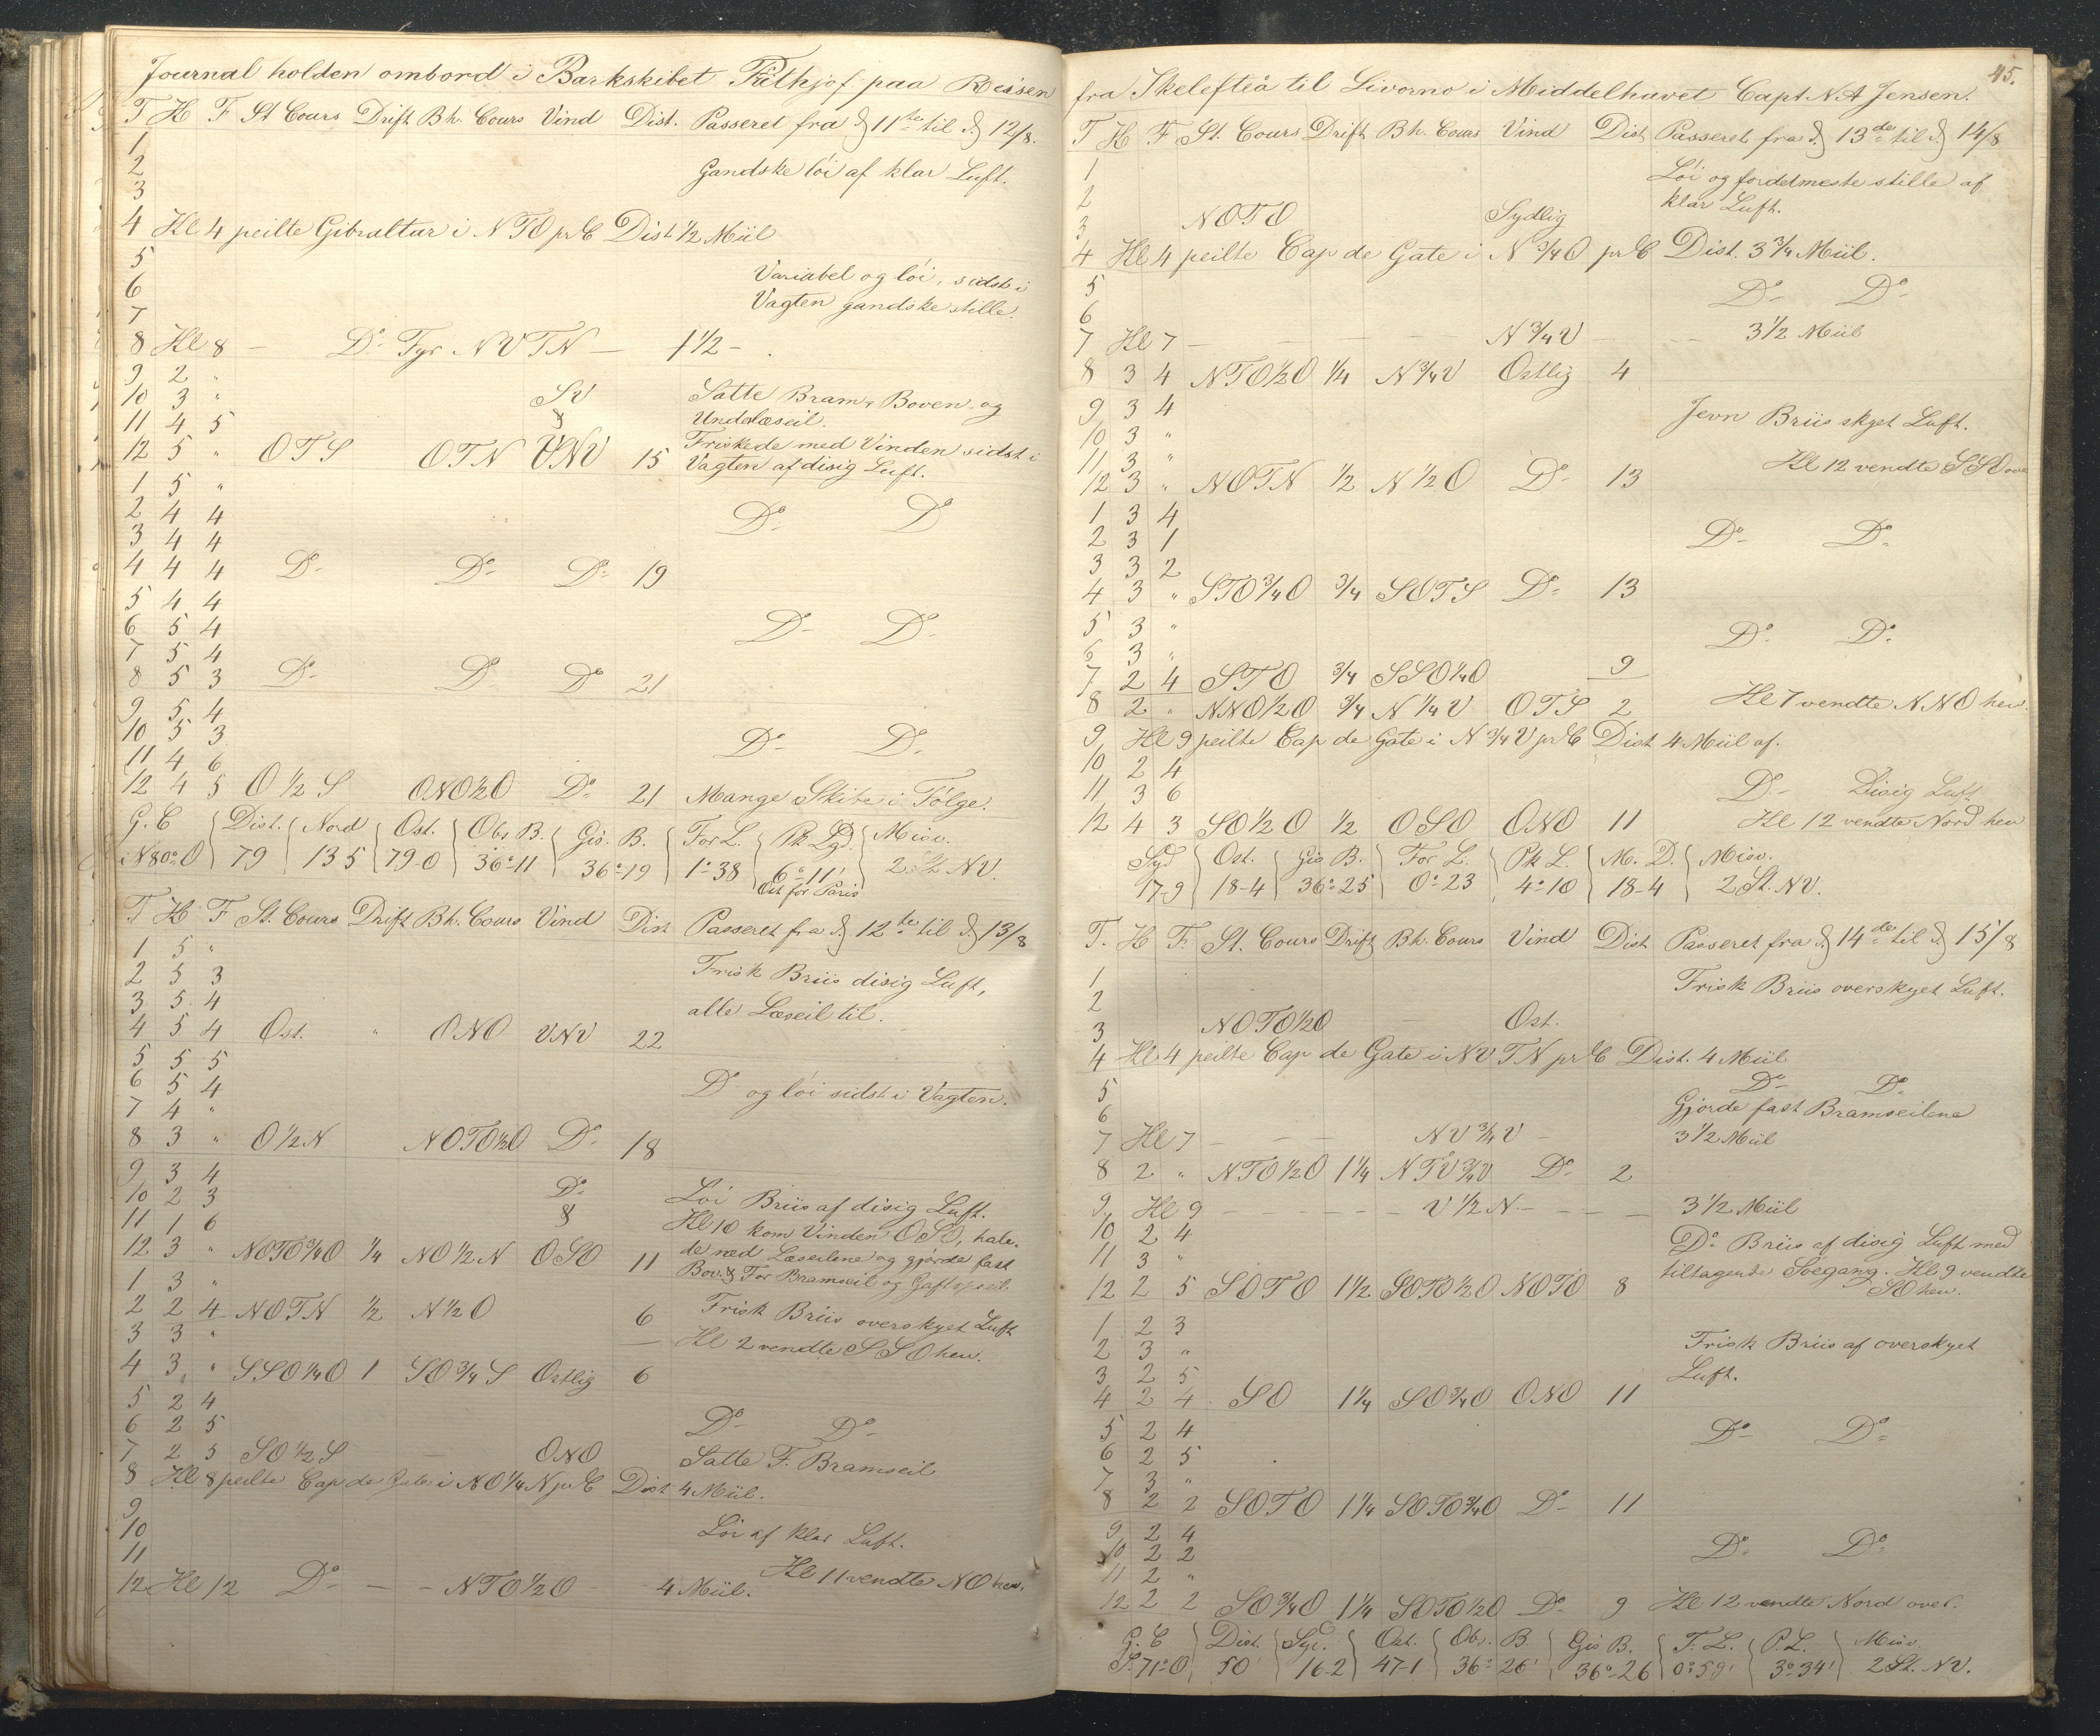 Journal holden ombord i Barkskibet Frithjof paa Reisen
T H F St Cours Drift Bh. Cours Vind Dist. Passeret fra d 11te til d 12/8.
1
2 Gandske löi af klar Luft.
3
4 Kl 4 peilte Gibraltar i N T O pr C Dist 1/2 Miil
5
6 Variabel og löi, sidst i
7 Vagten gandske stille.
8 Kl 8 — Do Fyr N V T N — 1 1/2 —
9 2 "
10 3 " SV Satte Bram, Boven og
11 4 5 & Underlæseil.
12 5 " OTS OTN VNV 15 Friskede med Vinden sidst i
Vagten af disig Luft.
1 5 "
2 4 4 Do D
3 4 4
4 4 4 Do Do Do 19
5 4 4
6 5 4 Do Do
7 5 4
8 5 3 Do D Do 21
9 5 4
10 5 3 Do Do
11 4 6
12 4 5 O 1/2 S ONO 1/2 O Do 21 Mange Skibe i Følge.
G. C Dist. Nord Ost. Obs B. Gis. B. For L. Pk Lgd. Misv.
i N 80° O 79 13 5 79-0 36°-11 36°-19 1°-38 6°-11' 2 St. NV.
Ost for Paris
T H F St. Cours Drift Bh. Cours Vind Dist Passeret fra d 12te til d 13/8
1 5 "
2 5 3 Frisk Briis disig Luft,
3 5 4 alle Læseil til.
4 5 4 Ost. " ONO VNV 22
5 5 5
6 5 4 Do og löi sidst i Vagten.
7 4 "
8 3 " O 1/2 N NOTO 1/2 O Do 18
9 3 4
10 2 3 Do Löi Briis af disig Luft.
11 1 6 & Kl 10 kom Vinden OSO, hale-
12 3 " NOTO 3/4 O 1/4 NO 1/2 N OSO 11 de ned Læseilene og gjorde fast
1 3 " Bov. & For Bramseil og Gaftopseil.
2 2 4 NOTN 1/2 N 1/2 O 6 Frisk Briis overskyet Luft
3 3 " Kl 2 vendte SSO hen.
4 3 " SSO 1/4 O 1 SO 3/4 S Ostlig 6
5 2 4
6 2 5 Do Do
7 2 5 SO 1/2 S — ONO Satte F. Bramseil
8 Kl 8 peilte Cap de Gate i NO 1/4 N pr C Dist 4 Miil.
9
10 Löi af klar Luft.
11 Kl 11 vendte NO hen.
12 Kl 12 Do — — NTO 1/2 O 4 Miil.
45.
fra Skelefteå til Livorno i Middelhavet Capt. N A Jensen.
T H F St. Cours Drift Bh. Cours Vind Dist Passeret fra d 13de til d 14/8
1 Löi og fordetmeste stille af
2 klar Luft.
3 NOTO Sydlig
4 Kl 4 peilte Cap de Gate i N 3/4 O pr C Dist. 3 3/4 Miil.
5 Do Do
6
7 Kl 7 — — — — N 3/4 V — — 3 1/2 Miil
8 3 4 NTO 1/2 O 1/4 N 3/4 V Ostlig 4
9 3 4 Jevn Briis skyet Luft.
10 3 "
11 3 " Kl 12 vendte SSO over
12 3 " NOTN 1/2 N 1/2 O Do 13
1 3 4
2 3 1 Do Do
3 3 2
4 3 " STO 3/4 O 3/4 SOTS Do 13
5 3 "
6 3 " Do Do
7 2 4 STO 3/4 SSO 1/4 O 9
8 2 " NNO 1/2 O 3/4 N 1/4 V OTS 2 Kl 7 vendte NNO hen.
9 Kl 9 peilte Cap de Gate i N 3/4 V pr C Dist 4 Miil af.
10 2 4
11 3 6 Do Disig Luft
12 4 3 SO 1/2 O 1/2 OSO ONO 11 Kl 12 vendte Nord hen
Syd Ost. Gis B. For L. Pk L. M. D. Misv.
17-9 18-4 36°-25 0°-23 4°-10 18-4 2 St. NV.
T. H F. St. Cours Drift Bh. Cours Vind Dist Passeret fra d 14de til d 15/8
1 Frisk Briis overskyet Luft.
2
3 NOTO 1/2 O — Ost.
4 Kl 4 peilte Cap de Gate i NV TN pr C Dist. 4 Miil
5 Do Do
6 Gjorde fast Bramseilene
7 Kl 7 — — — NV 3/4 V — 3 1/2 Miil
8 2 " NTO 1/2 O 1 1/4 NTV 3/4 V Do 2
9 Kl 9 — — — — — V 1/2 N — — — 3 1/2 Miil
10 2 4 Do Briis af disig Luft med
11 3 " tiltagende Söegang. Kl 9 vendte
12 2 5 SOTO 1 1/2 SOTO 1/2 O NOTO 8 SO hen.
1 2 3
2 3 " Frisk Briis af overskyet
3 2 5 Luft.
4 2 4 SO 1 1/4 SO 3/4 O ONO 11
5 2 4 Do Do
6 2 5
7 3 "
8 2 2 SOTO 1 1/4 SOTO 3/4 O Do 11
9 2 4
10 2 2 Do Do
11 2 "
12 2 2 SO 3/4 O 1 1/4 SOTO 1/2 O Do 9 Kl 12 vendte Nord over.
G. C Dist. Syd. Ost. Obs. B. Gis B. F. L. P. L. Misv.
S. 71° O 50' 16-2 47-1 36°-26' 36°-26 0°-59' 3°-34' 2 St. NV.